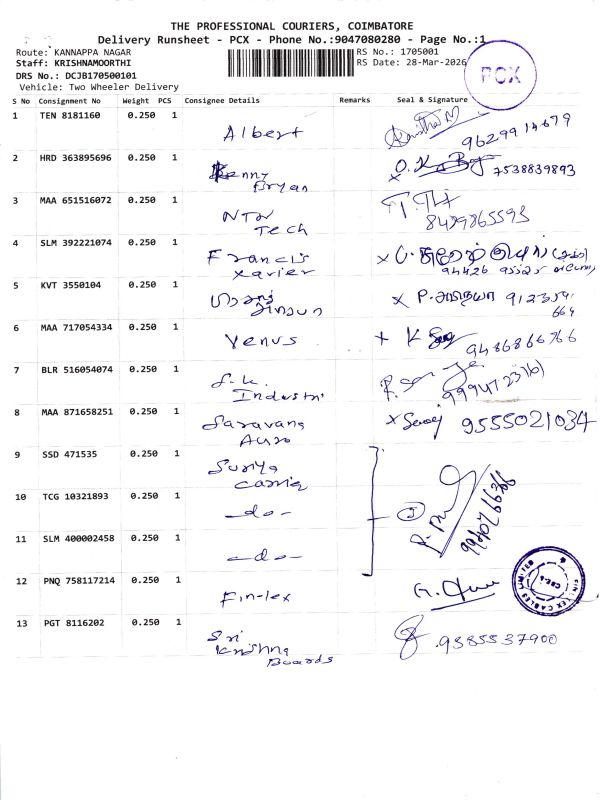 THE PROFESSIONAL COURIERS, COIMBATORE
Delivery Runsheet - PCX - Phone No.:9047080280 - Page No.:1
Route: KANNAPPA NAGAR RS No.: 1705001
Staff: KRISHNAMOORTHI RS Date: 28-Mar-2026
PCX
DRS No.: DCJB170500101
Vehicle: Two Wheeler Delivery
S No Consignment No Weight PCS Consignee Details Remarks Seal & Signature
1 TEN 8181160 0.250 1 Albert
2 HRD 363895696 0.250 1 Benny Bryan 7538839893
3 MAA 651516072 0.250 1 NTN Tech 8489865593
4 SLM 392221074 0.250 1 Francis Xavier
5 KVT 3550104 0.250 1
6 MAA 717054334 0.250 1 Venus 9486866766
7 BLR 516054074 0.250 1 S.K. Industri
8 MAA 871658251 0.250 1 Saravana Auro 9555021034
9 SSD 471535 0.250 1 Suriya
10 TCG 10321893 0.250 1 -do-
11 SLM 400002458 0.250 1 -do-
12 PNQ 758117214 0.250 1 Finlex
13 PGT 8116202 0.250 1 Sri Krishna Boards 9385537900